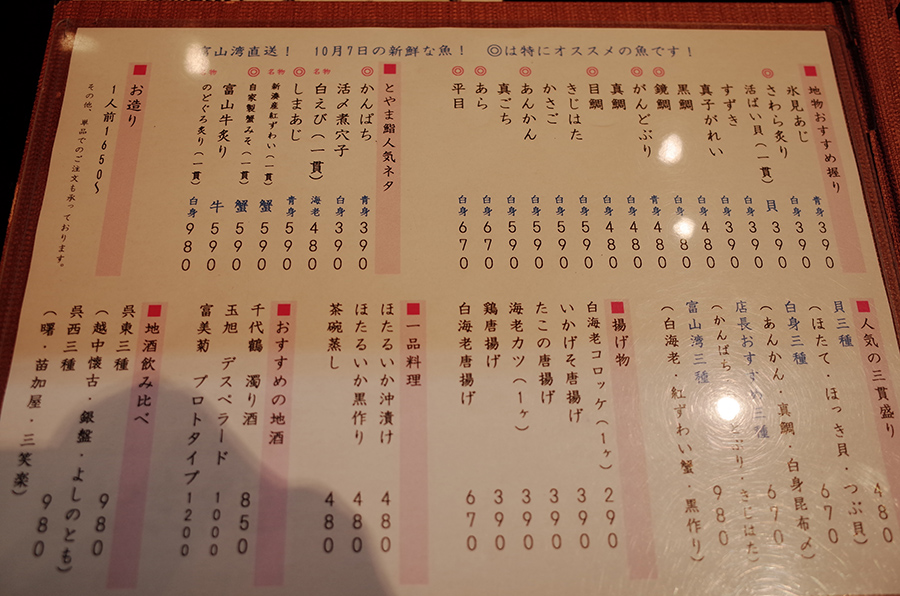 富山湾直送！ 10月7日の新鮮な魚！ ◎は特にオススメの魚です！
■地物おすすめ握り
氷見あじ 青身 390
さわら炙り 白身 390
◎活ばい貝（一貫） 貝 390
すずき 白身 390
真子がれい 白身 390
黒鯛 白身 480
◎鏡鯛 白身 480
◎がんどぶり 青身 480
真鯛 白身 480
◎目鯛 白身 480
きじはた 白身 590
かさご 白身 590
◎あんかん 白身 590
真ごち 白身 590
◎あら 白身 670
◎平目 白身 670
■とやま鮨人気ネタ
◎かんぱち 青身 390
活〆煮穴子 白身 390
名物 白えび（一貫） 海老 480
◎しまあじ 青身 590
名物 新湊産紅ずわい（一貫） 蟹 590
◎自家製蟹みそ（一貫） 蟹 590
富山牛炙り 牛 590
のどぐろ炙り（一貫） 白身 980
■お造り
1人前1650〜
その他、単品でのご注文も承っております。
■人気の三貫盛り
貝三種 480
（ほたて・ほっき貝・つぶ貝）
白身三種 670
（あんかん・真鯛・白身昆布〆）
店長おすすめ三種 670
（かんぱち・ぶり・きじはた）
富山湾三種 980
（白海老・紅ずわい蟹・黒作り）
■揚げ物
白海老コロッケ（1ヶ） 290
いかげそ唐揚げ 390
たこの唐揚げ 390
海老カツ（1ヶ） 390
鶏唐揚げ 390
白海老唐揚げ 670
■一品料理
ほたるいか沖漬け 480
ほたるいか黒作り 480
茶碗蒸し 480
■おすすめの地酒
千代鶴 濁り酒 850
玉旭 デスペラード 1000
富美菊 プロトタイプ 1200
■地酒飲み比べ
呉東三種 980
（越中懐古・銀盤・よしのとも）
呉西三種 980
（曙・苗加屋・三笑楽）